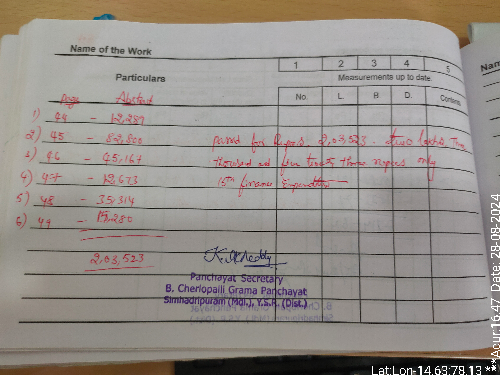 Name of the Work
1 2 3 4 5
Particulars
Measurements up to date
No. L. B. D. Contents
Page Abstract
1) 44 - 12,289
2) 45 - 82,800 passed for Rupees. 2,03,523 - two lachs Three
3) 46 - 45,167 thousand five three rupees only
4) 47 - 12,673 15th finance Expenditure
5) 48 - 35,314
6) 49 - 15,280
2,03,523
Panchayat Secretary
B. Cherlopalli Grama Panchayat
Simhadripuram (Mdl.), Y.S.R. (Dist.)
Lat:Lon-14.63:78.13 ***Acur:16.47 Date: 29-08-2024